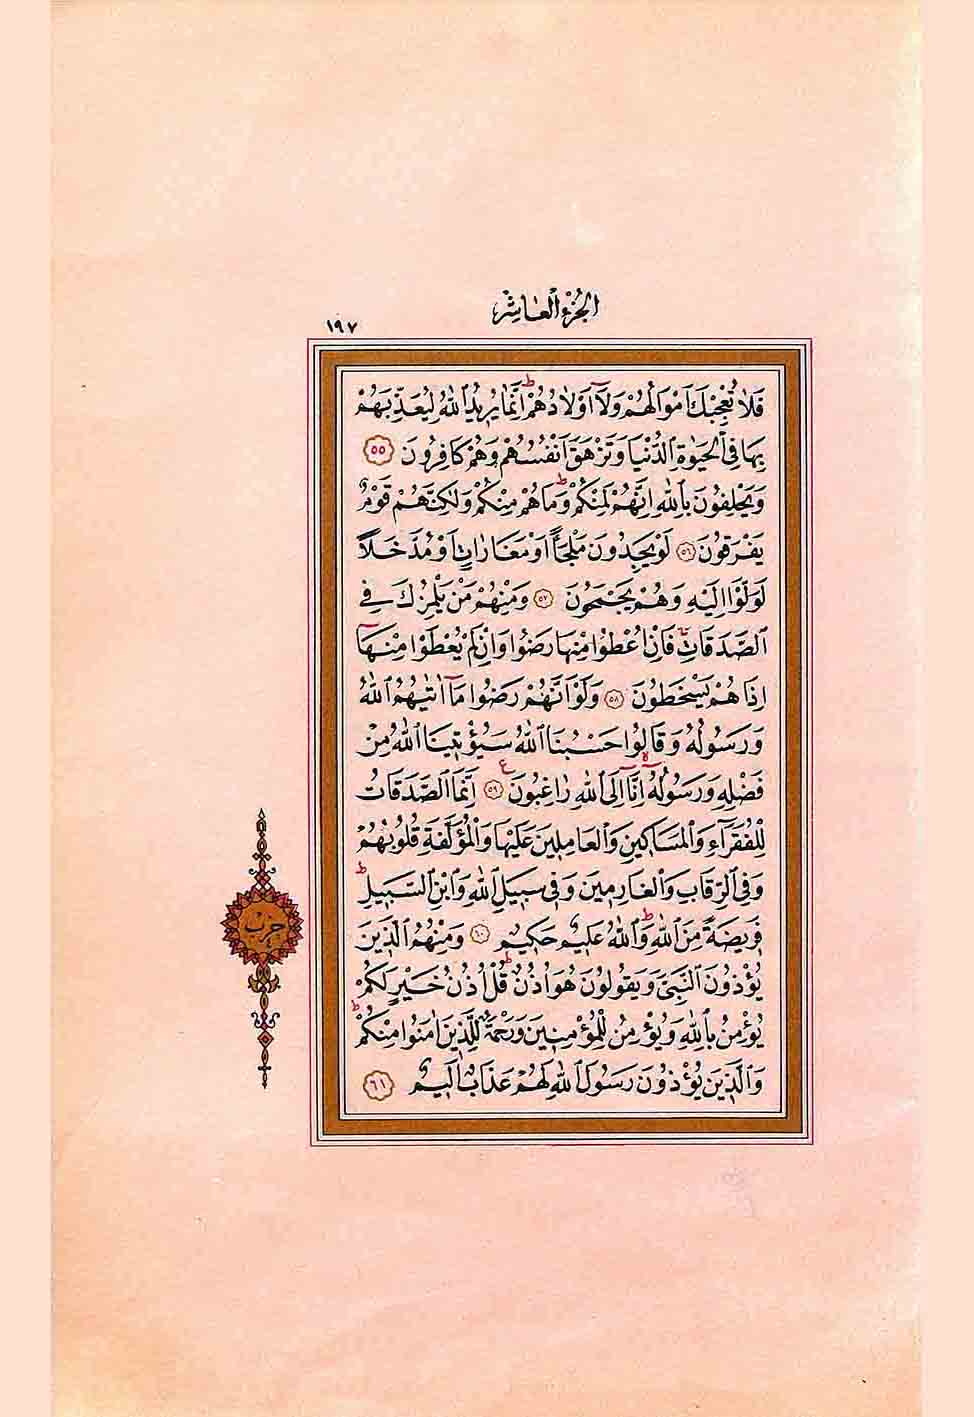 الجزء العاشر
١٩٧
فَلَا تُعْجِبْكَ اَمْوَالُهُمْ وَلَٓا اَوْلَادُهُمْۜ اِنَّمَا يُرِيدُ اللّٰهُ لِيُعَذِّبَهُمْ
بِهَا فِي الْحَيٰوةِ الدُّنْيَا وَتَزْهَقَ اَنْفُسُهُمْ وَهُمْ كَافِرُونَ ٥٥
وَيَحْلِفُونَ بِاللّٰهِ اِنَّهُمْ لَمِنْكُمْۜ وَمَا هُمْ مِنْكُمْ وَلٰكِنَّهُمْ قَوْمٌ
يَفْرَقُونَ ٥٦ لَوْ يَجِدُونَ مَلْجَـًٔا اَوْ مَغَارَاتٍ اَوْ مُدَّخَلًا
لَوَلَّوْا اِلَيْهِ وَهُمْ يَجْمَحُونَ ٥٧ وَمِنْهُمْ مَنْ يَلْمِزُكَ فِي
الصَّدَقَاتِۚ فَاِنْ اُعْطُوا مِنْهَا رَضُوا وَاِنْ لَمْ يُعْطَوْا مِنْهَٓا
اِذَا هُمْ يَسْخَطُونَ ٥٨ وَلَوْ اَنَّهُمْ رَضُوا مَٓا اٰتٰيهُمُ اللّٰهُ
وَرَسُولُهُ وَقَالُوا حَسْبُنَا اللّٰهُ سَيُؤْتِينَا اللّٰهُ مِنْ
فَضْلِهِ وَرَسُولُهُٓ اِنَّٓا اِلَى اللّٰهِ رَاغِبُونَ ٥٩ اِنَّمَا الصَّدَقَاتُ
لِلْفُقَرَٓاءِ وَالْمَسَاكِينِ وَالْعَامِلِينَ عَلَيْهَا وَالْمُؤَلَّفَةِ قُلُوبُهُمْ
وَفِي الرِّقَابِ وَالْغَارِمِينَ وَفِي سَبِيلِ اللّٰهِ وَابْنِ السَّبِيلِۜ
فَرِيضَةً مِنَ اللّٰهِۜ وَاللّٰهُ عَلِيمٌ حَكِيمٌ ٦٠ وَمِنْهُمُ الَّذِينَ
يُؤْذُونَ النَّبِيَّ وَيَقُولُونَ هُوَ اُذُنٌۜ قُلْ اُذُنُ خَيْرٍ لَكُمْ
يُؤْمِنُ بِاللّٰهِ وَيُؤْمِنُ لِلْمُؤْمِنِينَ وَرَحْمَةٌ لِلَّذِينَ اٰمَنُوا مِنْكُمْۜ
وَالَّذِينَ يُؤْذُونَ رَسُولَ اللّٰهِ لَهُمْ عَذَابٌ اَلِيمٌ ٦١
حزب